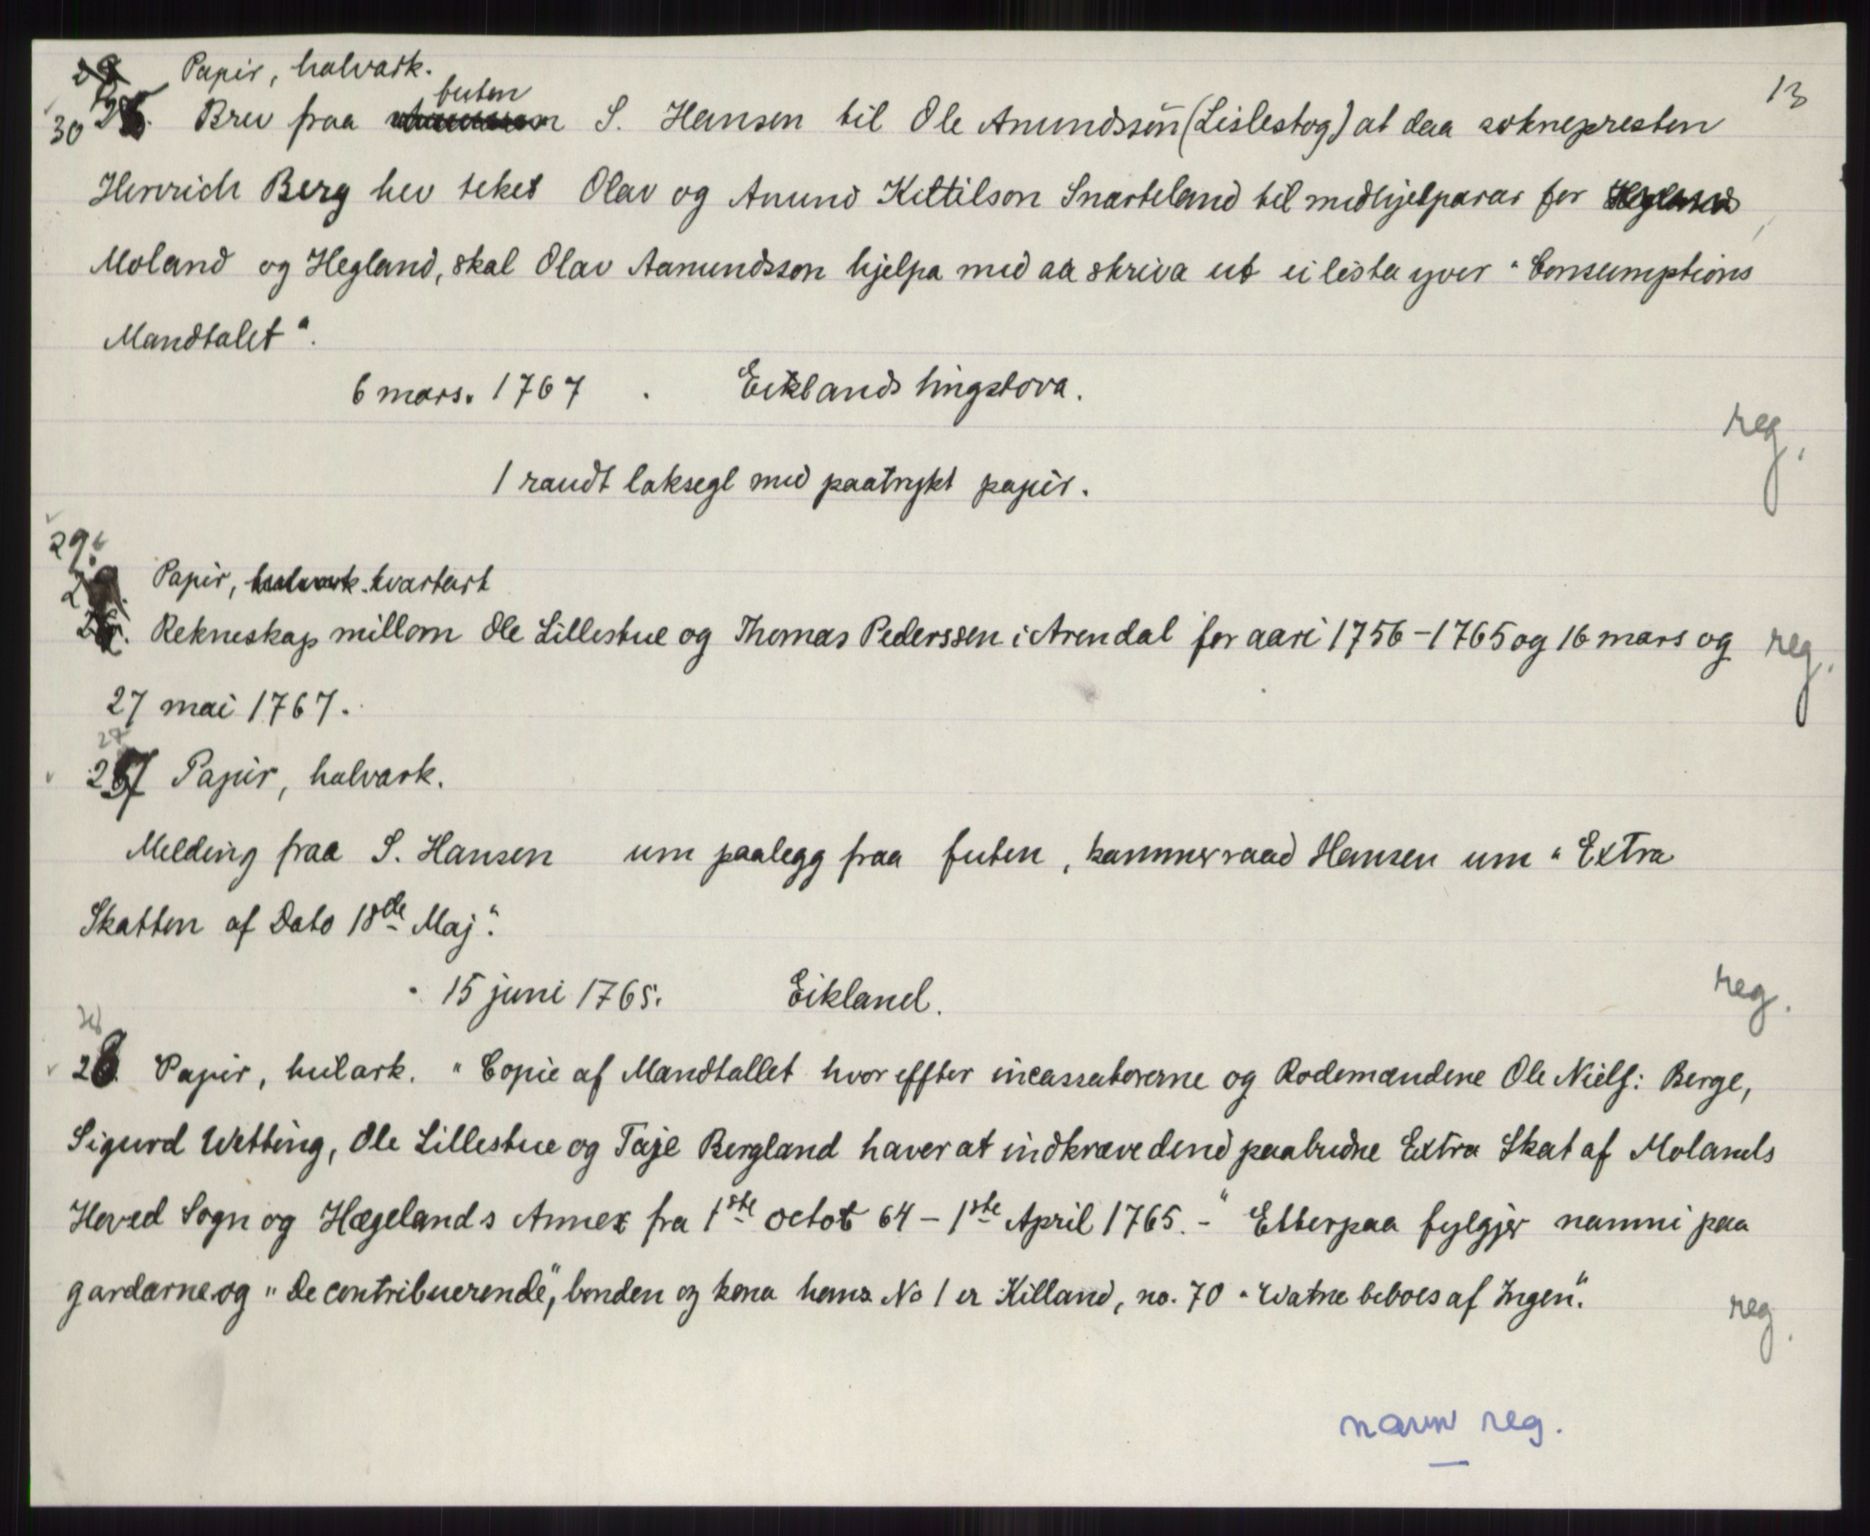 28 Papir, halvark. 13
30 25. Brev fraa futen S. Hansen til Ole Anundssøn (Lislestog) at daa soknepresten
Henrich Berg hev teket Olav og Anund Kittilson Snarteland til medhjelparar for
Moland og Hegland, skal Olav Aamundsson hjelpa med aa skriva ut ei lista yver "Consumptions
Mandtalet".
6 mars. 1767 . Eiklands tingstova.
reg.
1 raudt laksegl med paatrykt papir.
29.
Papir, halvark. kvartark
Rekneskap millom Ole Lillestue og Thomas Pederssen i Arendal for aari 1756-1765 og 16 mars og reg.
27 mai 1767.
27
Papir, halvark.
Melding fraa S. Hansen um paalegg fraa futen, kammerraad Hansen um "Extra
Skatten af Dato 18de Maj".
15 juni 1765. Eikland. reg.
28
28. Papir, heilark. "Copie af Mandtallet hvor effter incassatorerne og Rodemændene Ole Niels: Berge,
Sigurd Wetting, Ole Lillestue og Taje Bergland haver at indkræve dend paabudne Extra Skat af Molands
Hoved Sogn og Hægelands Annex fra 1ste octot 64 - 1ste April 1765. -" Etterpaa fylgjer namni paa
gardarne og "De contribuerende", bonden og kona hans No 1 er Killand, no. 70 "Watne beboes af Ingen".
reg.
navn reg.